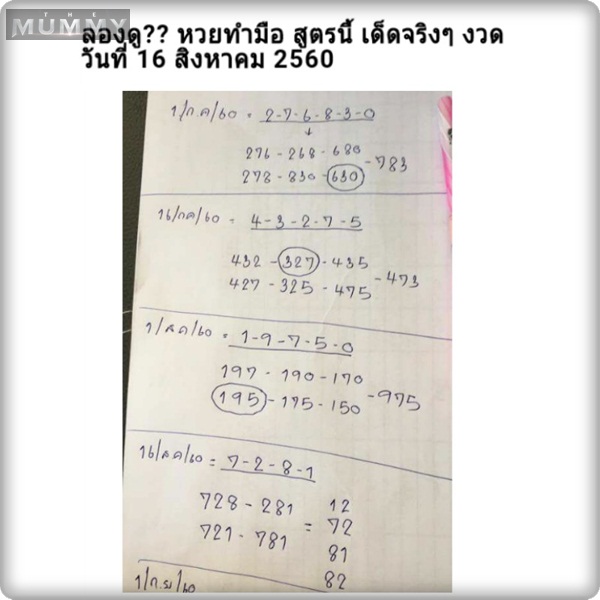 THE
MUMMY
ลองดู?? หวยทำมือ สูตรนี้ เด็ดจริงๆ งวด
วันที่ 16 สิงหาคม 2560
1/ก.ค/60 = 2-7-6-8-3-0
276 - 268 - 680
278 - 830 - 630 - 783
16/กค/60 = 4-3-2-7-5
432 - 327 - 435
427 - 325 - 475 - 473
1/สค/60 = 1-9-7-5-0
197 - 190 - 170
195 - 175 - 150 - 975
16/สค/60 = 7-2-8-1
728 - 281 12
721 - 781 = 72
81
82
1/ก.ย/60